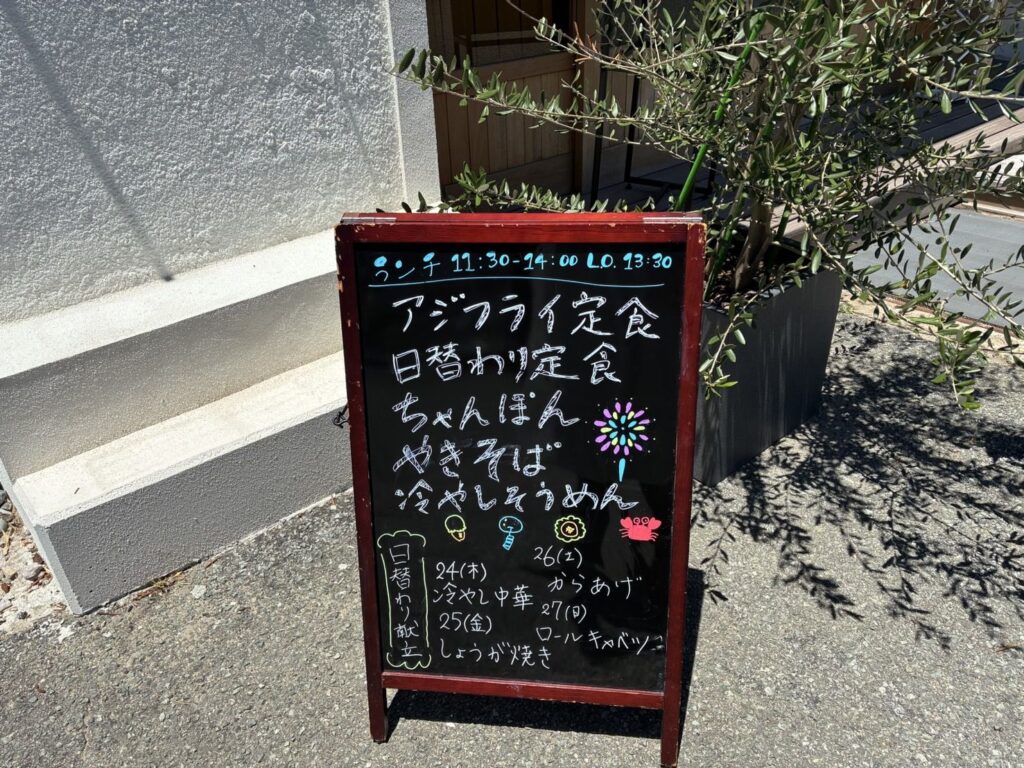 ランチ 11:30-14:00 L.O. 13:30
アジフライ定食
日替わり定食
ちゃんぽん
やきそば
冷やしそうめん
日替わり献立
24(木)
冷やし中華
25(金)
しょうが焼き
26(土)
からあげ
27(日)
ロールキャベツ